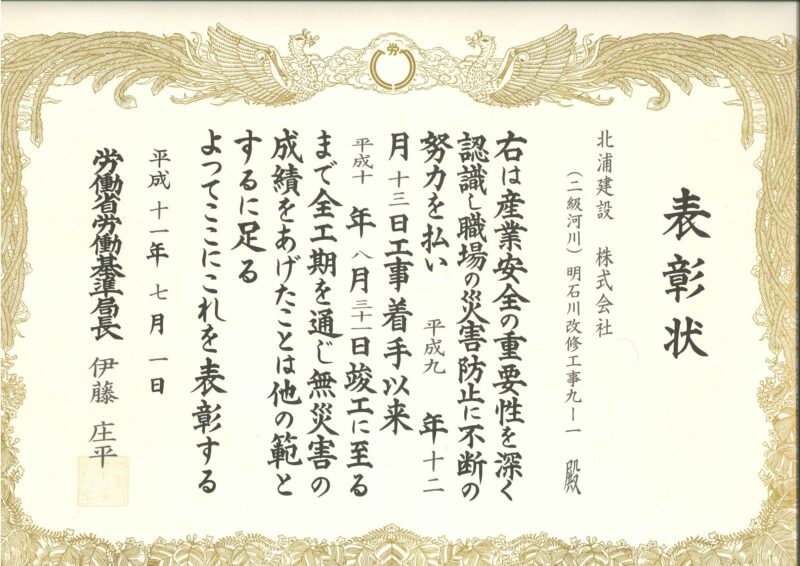 労
表彰状
北浦建設 株式会社
(二級河川)明石川改修工事九ー一 殿
右は産業安全の重要性を深く
認識し職場の災害防止に不断の
努力を払い 平成九 年 十二
月 十三 日工事着手以来
平成十 年 八 月 三十一 日竣工に至る
まで全工期を通じ無災害の
成績をあげたことは他の範と
するに足る
よってここにこれを表彰する
平成 十一年 七 月 一日
労働省労働基準局長 伊藤 庄平